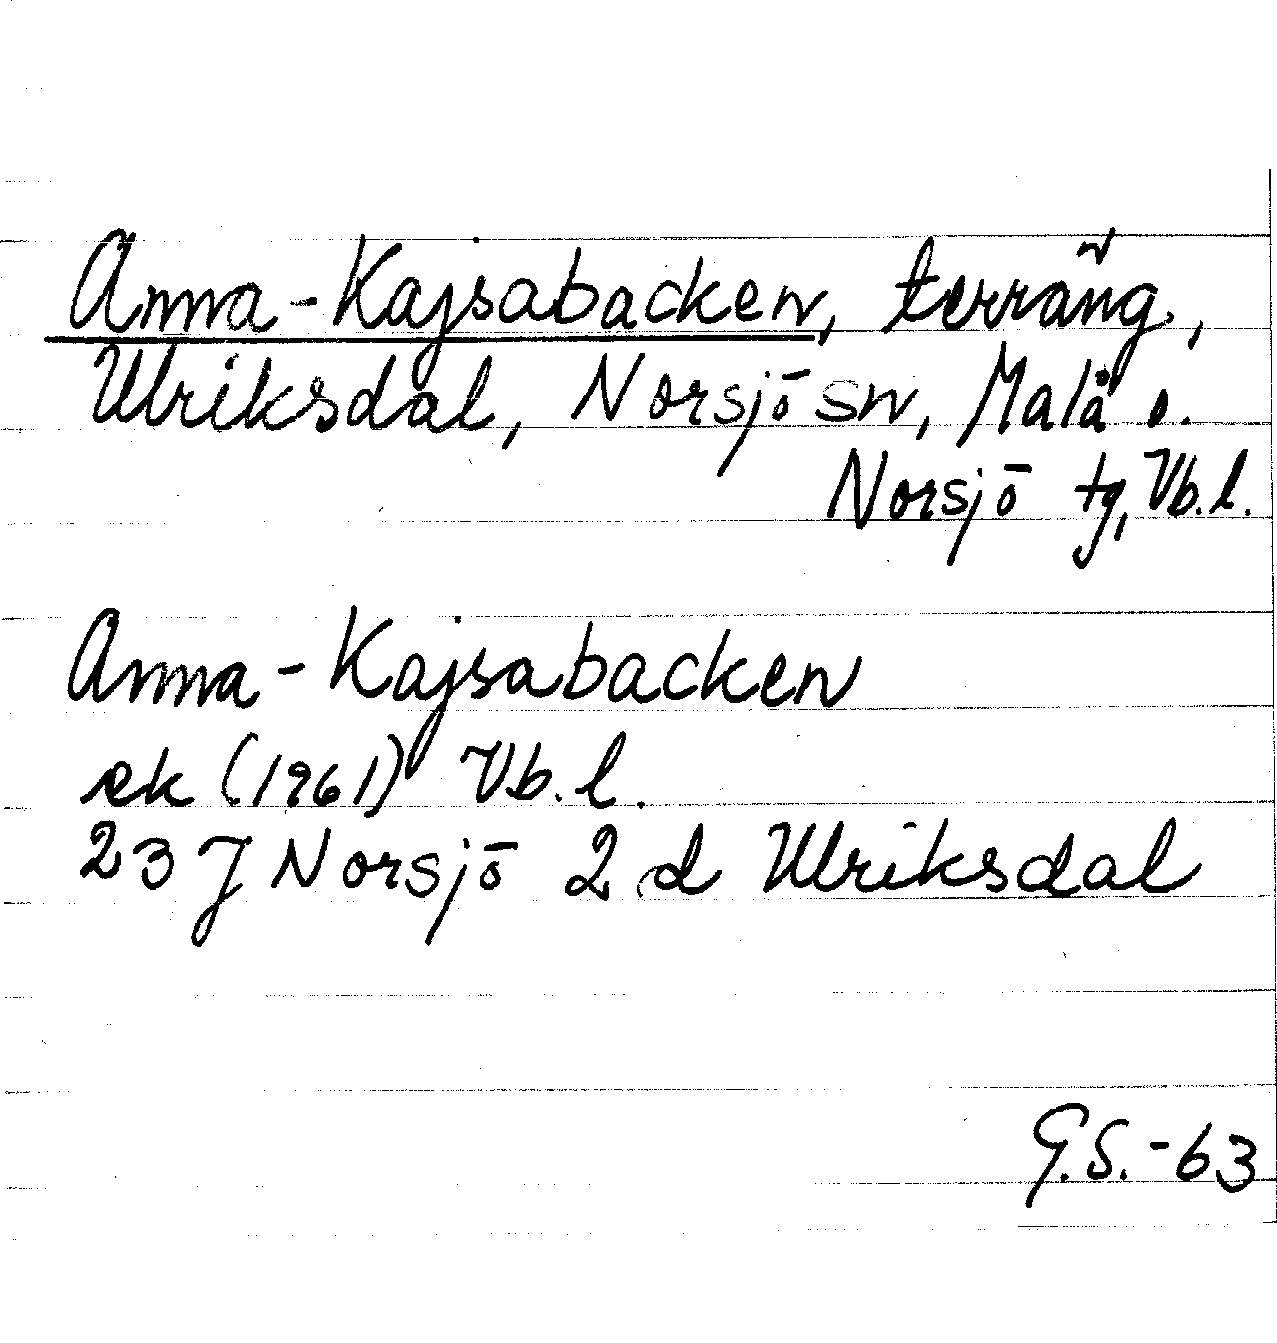 Anna-Kajsabacken, terräng,
Ulriksdal, Norsjö sn, Malå o.
Norsjö tg, Vb.l.
Anna-Kajsabacken
ek (1961) Vb.l.
23 J Norsjö 2 d Ulriksdal
G.S.-63